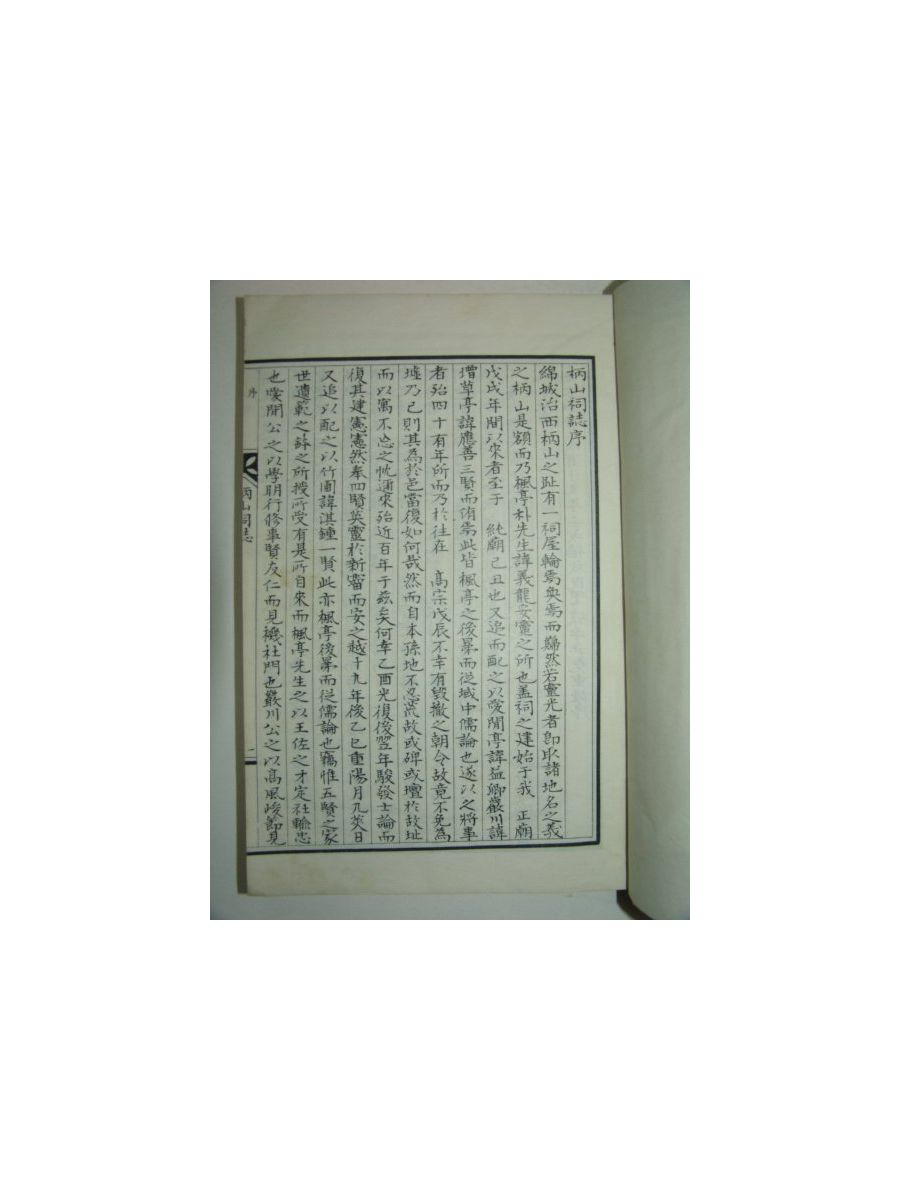 柄山祠誌序
綿城治西柄山之趾有一祠屋輪焉奐焉而巋然若靈光者卽取諸地名之義
之柄山是額而乃楓亭朴先生諱義龍安靈之所也盖祠之建始于我 正廟
戊戌年間以來者至于 純廟己丑也又追而配之以愛閒亭諱益卿巖川諱
增草亭諱應善三賢而侑焉此皆楓亭之後昆而從域中儒論也遂以之將事
者殆四十有年所而乃於往在 高宗戊辰不幸有毁撤之朝令故竟不免爲
墟乃已則其為於邑當復如何哉然而自本孫地不忍荒故或碑或壇於故址
而以寓不忘之忱邇來殆近百年于茲矣何幸乙酉光復後翌年駿發士論而
復其建憲憲然奉四賢英靈於新霤而安之越十九年後乙巳重陽月九蓂日
又追以配之以竹圃諱淇鍾一賢此亦楓亭後昆而從儒論也竊惟五賢之家
世遺範之緖之所授所受有是所自來而楓亭先生之以王佐之才定社輸忠
也愛閒公之以學明行修事賢友仁而見機杜門也巖川公之以高風峻節見
序
柄山祠誌